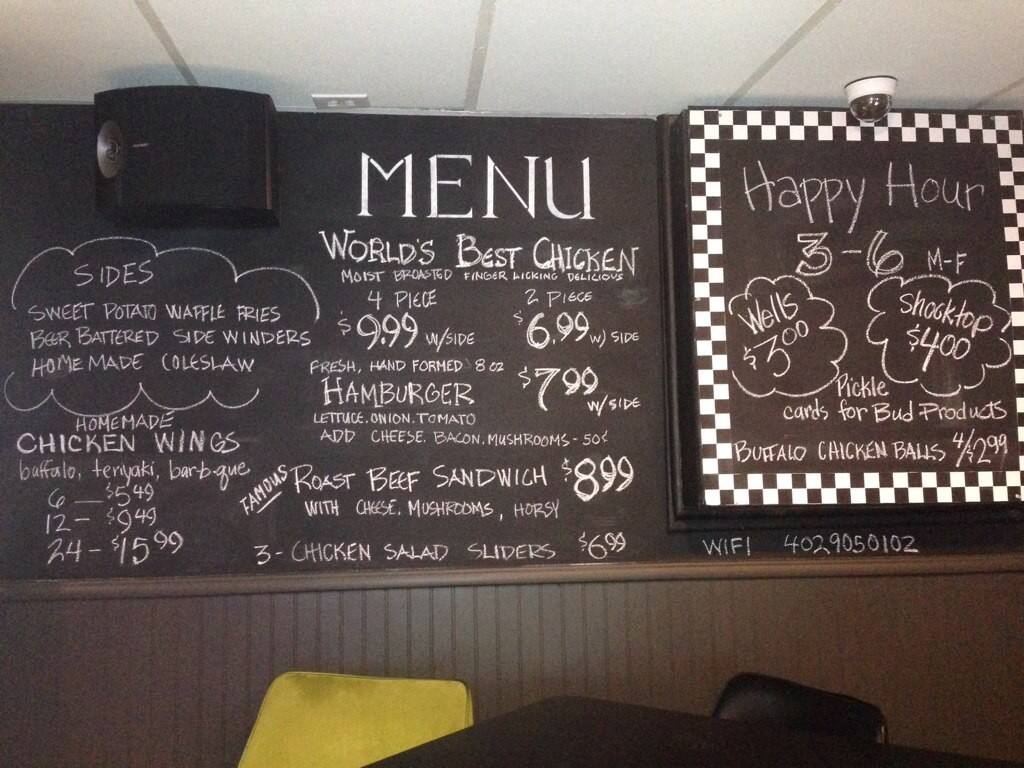 MENU
WORLD'S BEST CHICKEN
MOIST BROASTED FINGER LICKING DELICIOUS
4 PIECE
$9.99 W/SIDE
2 PIECE
$6.99 W/SIDE
FRESH, HAND FORMED 8 OZ
HAMBURGER $7.99 W/SIDE
LETTUCE. ONION. TOMATO
ADD CHEESE. BACON. MUSHROOMS - 50¢
FAMOUS ROAST BEEF SANDWICH $8.99
WITH CHEESE, MUSHROOMS, HORSY
3- CHICKEN SALAD SLIDERS $6.99
SIDES
SWEET POTATO WAFFLE FRIES
BEER BATTERED SIDE WINDERS
HOMEMADE COLESLAW
HOMEMADE
CHICKEN WINGS
buffalo, teriyaki, bar-b-que
6 — $5.49
12 - $9.49
24 - $15.99
Happy Hour
3-6 M-F
Wells
$3.00
Shocktop
$4.00
Pickle
cards for Bud Products
BUFFALO CHICKEN BALLS 4/$2.99
WIFI 4029050102